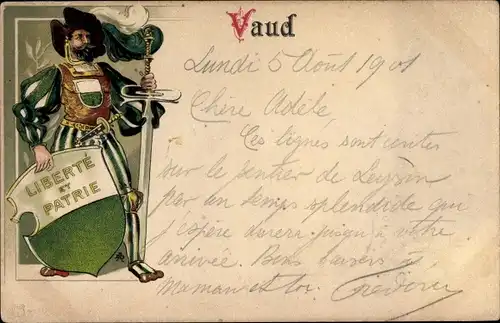 Vaud
Lundi 5 Août 1901
Chère Adèle
Ces lignes sont écrites
sur le sentier de Leysin
par un temps splendide qui
j'espère durera jusqu'à votre
arrivée. Bons baisers à
Maman et toi.
LIBERTÉ
ET
PATRIE